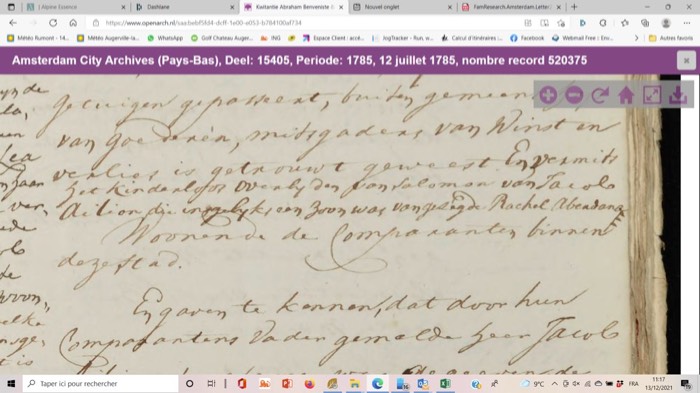 Alpine Essence
Dashlane
Kwitantie Abraham Benveniste
Nouvel onglet
FamResearch.Amsterdam.Letter
https://www.openarch.nl
Météo Rumont - 14...
Météo Augerville-la...
WhatsApp
Golf Chateau Auger...
ING
Espace Client : accè...
JogTracker - Run, w...
Calcul d'itinéraires :...
Facebook
Webmail Free | Env...
Autres favoris
Amsterdam City Archives (Pays-Bas), Deel: 15405, Periode: 1785, 12 juillet 1785, nombre record 520375
getuigen gepasseert, buiten gemeen
van goederen, mitsgaders van Winst en
verlies is getrouwt geweest En vermits
het kinderloos overlyden van Salomon van Jacob
die ingelyks een Zoon was van gezegde Rachel Abendana
Woonende de Comparanten binnen
deze stad.
En gaven te kennen, dat door hun
Comparanten Vader gemelde heer Jacob
Taper ici pour rechercher
9°C
FRA
11:17
13/12/2021